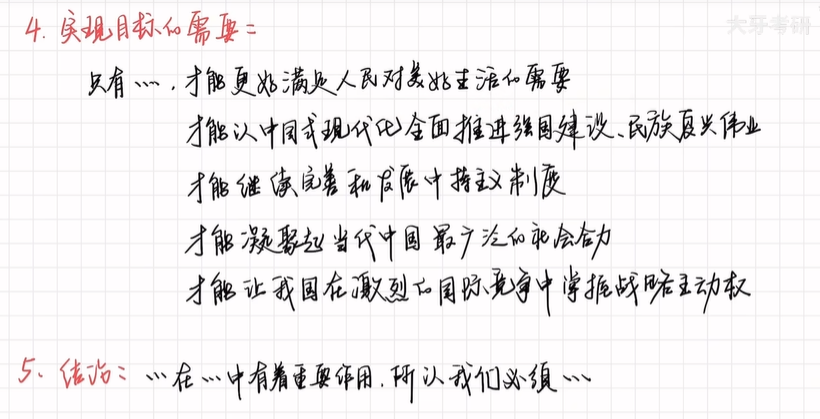 大牙考研
4. 实现目标的需要：
只有…，才能更好满足人民对美好生活的需要
才能以中国式现代化全面推进强国建设、民族复兴伟业
才能继续完善和发展中特主义制度
才能凝聚起当代中国最广泛的社会合力
才能让我国在激烈的国际竞争中掌握战略主动权
5. 结论：…在…中有着重要作用，所以我们必须…